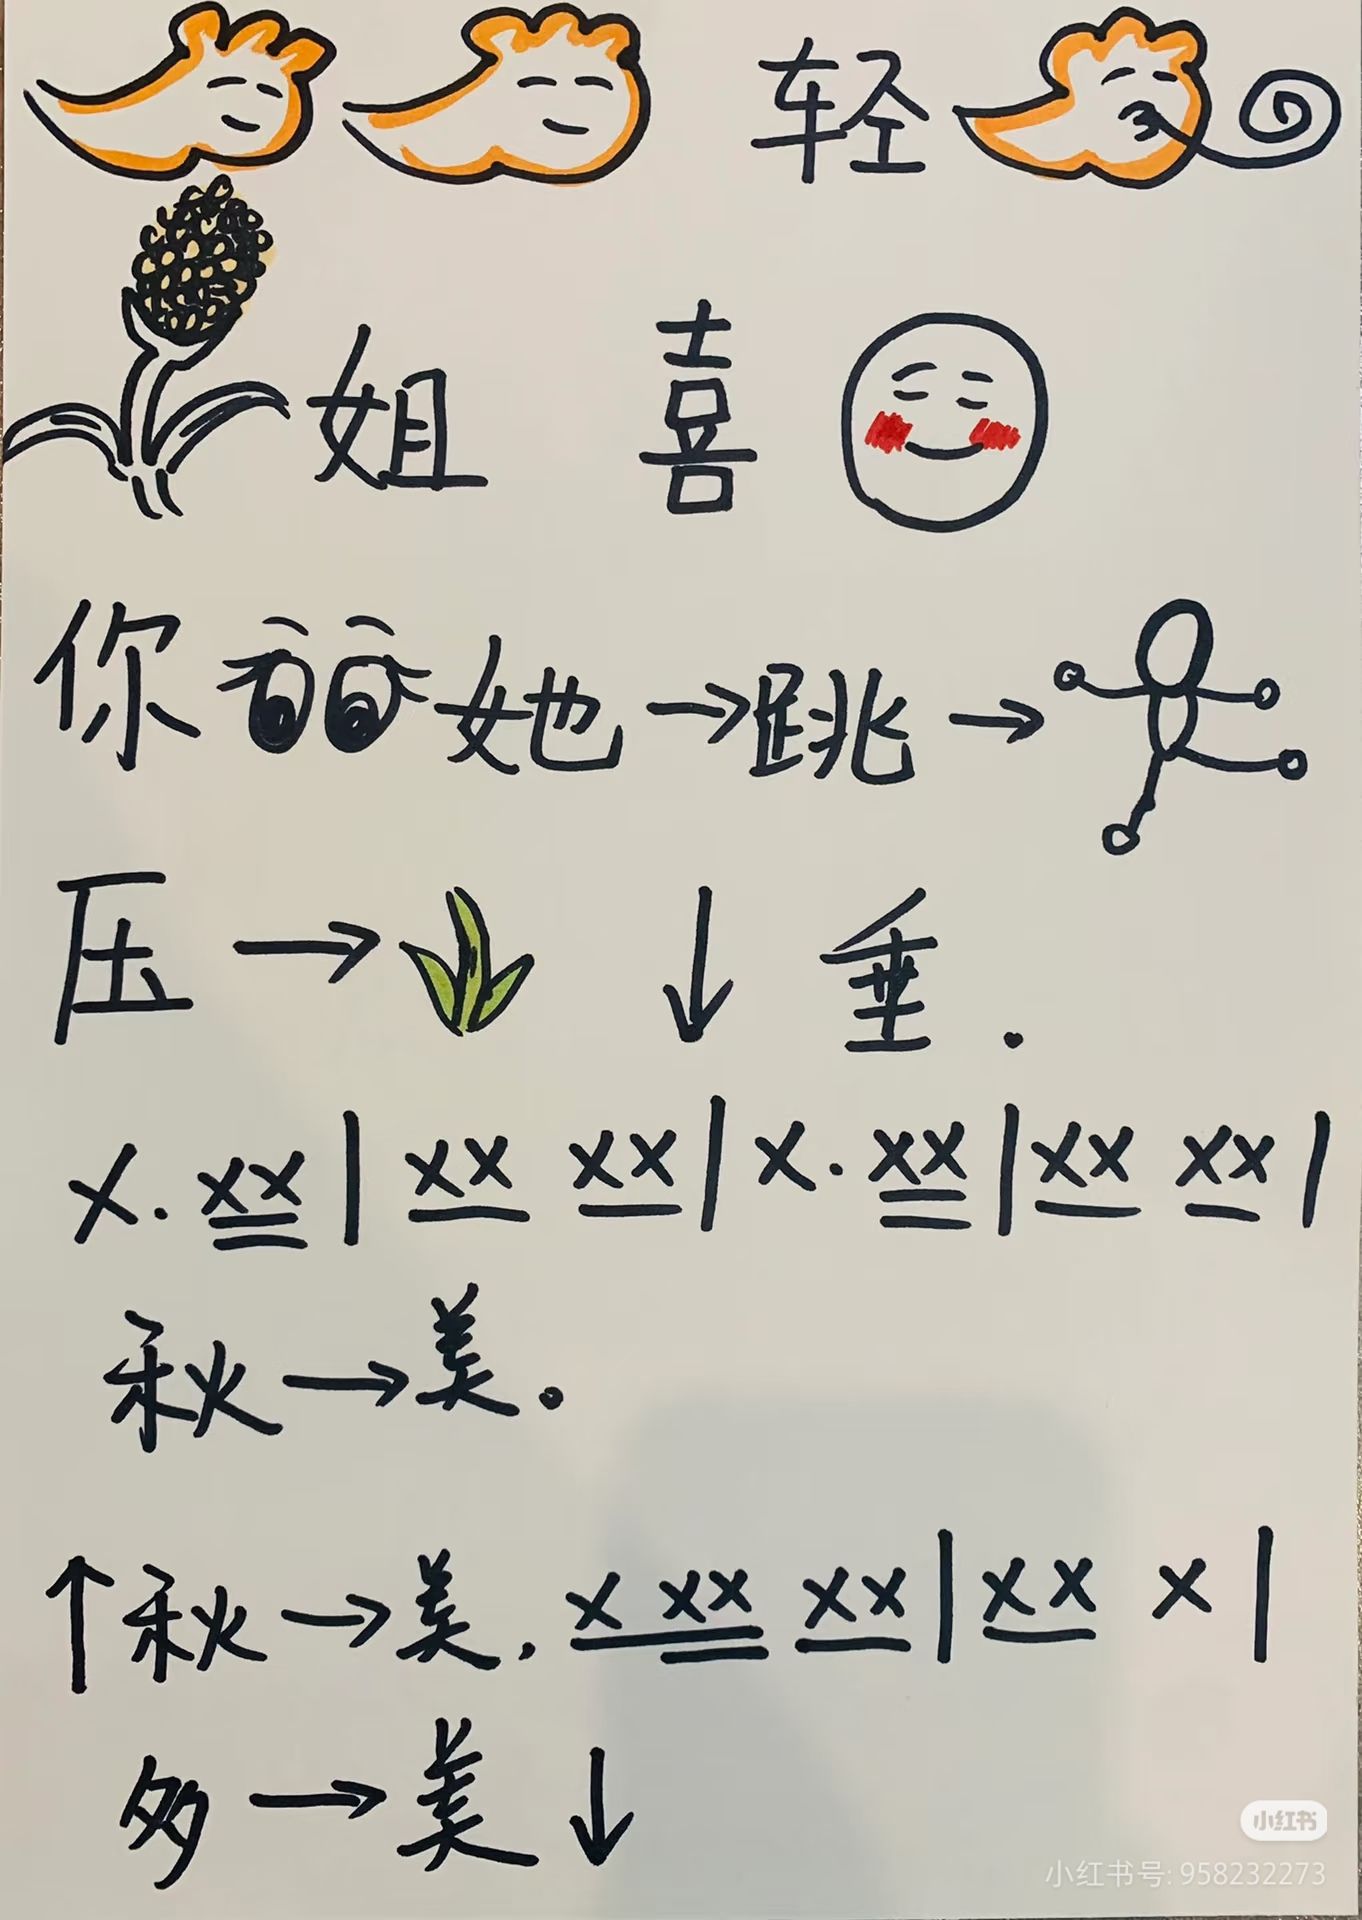 轻
姐 喜
你 她→跳→
压→ ↓ 垂.
X. XX | XX XX | X. XX | XX XX |
秋→美。
↑秋→美, X XX XX | XX X |
多→美↓
小红书
小红书号: 958232273